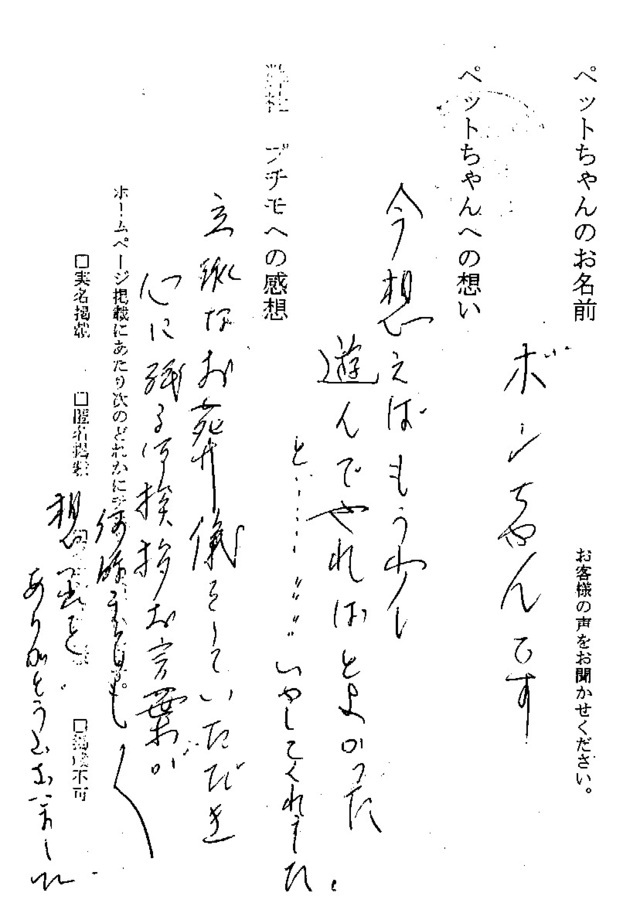 お客様の声をお聞かせください。
ペットちゃんのお名前
ボンちゃんです
ペットちゃんへの想い
今想えばもう少し
遊んでやればとよかった
と……〃〃いやしてくれました。
弊社 プチモへの感想
立派なお葬儀をしていただき
心に残る御挨拶お言葉が
ホームページ掲載にあたり次のどれかに
何時までも
□実名掲載 □匿名掲載 □掲載不可
想い出を
ありがとうございました